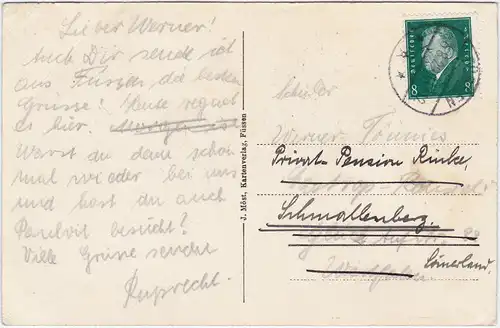 Lieber Werner!
Auch Dir sende ich
aus Füssen die besten
Grüsse! Heute regnet
es hier. Morgen ist
Warst du denn schon
mal wieder bei uns
und hast du auch
besucht?
Viele Grüsse sendet
Ruprecht.
J. Möst, Kartenverlag, Füssen
DEUTSCHES REICH
8 8
Schüler
Werner Tönnies
Privat-Pension Rinke,
Schmallenberg,
Sauerland.